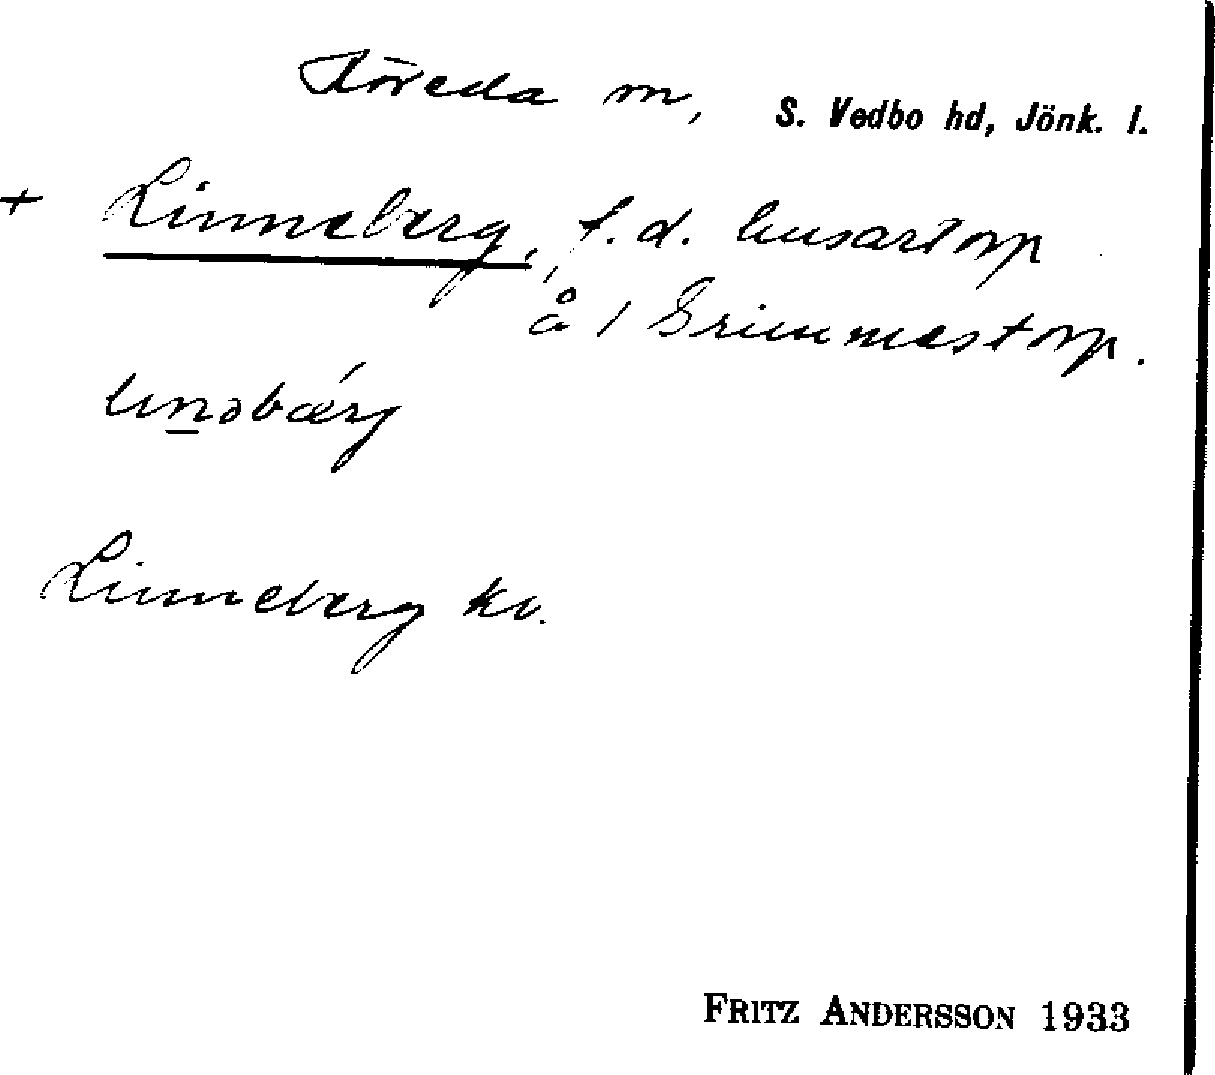 Höreda sn, S. Vedbo hd, Jönk. l.
+ Linneberg, f.d. husartorp
å 1 Grimmestorp.
Linneberg kv.
FRITZ ANDERSSON 1933